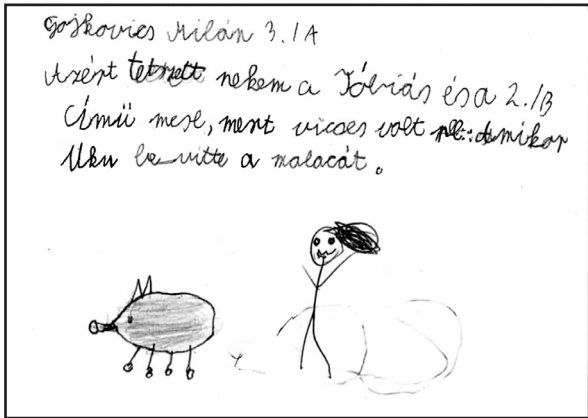 Gojkovics Milán 3./A
Azért tetszett nekem a Tóbiás és a 2./B
Című mese, mert vicces volt pl.: amikor
Uku be vitte a malacát.